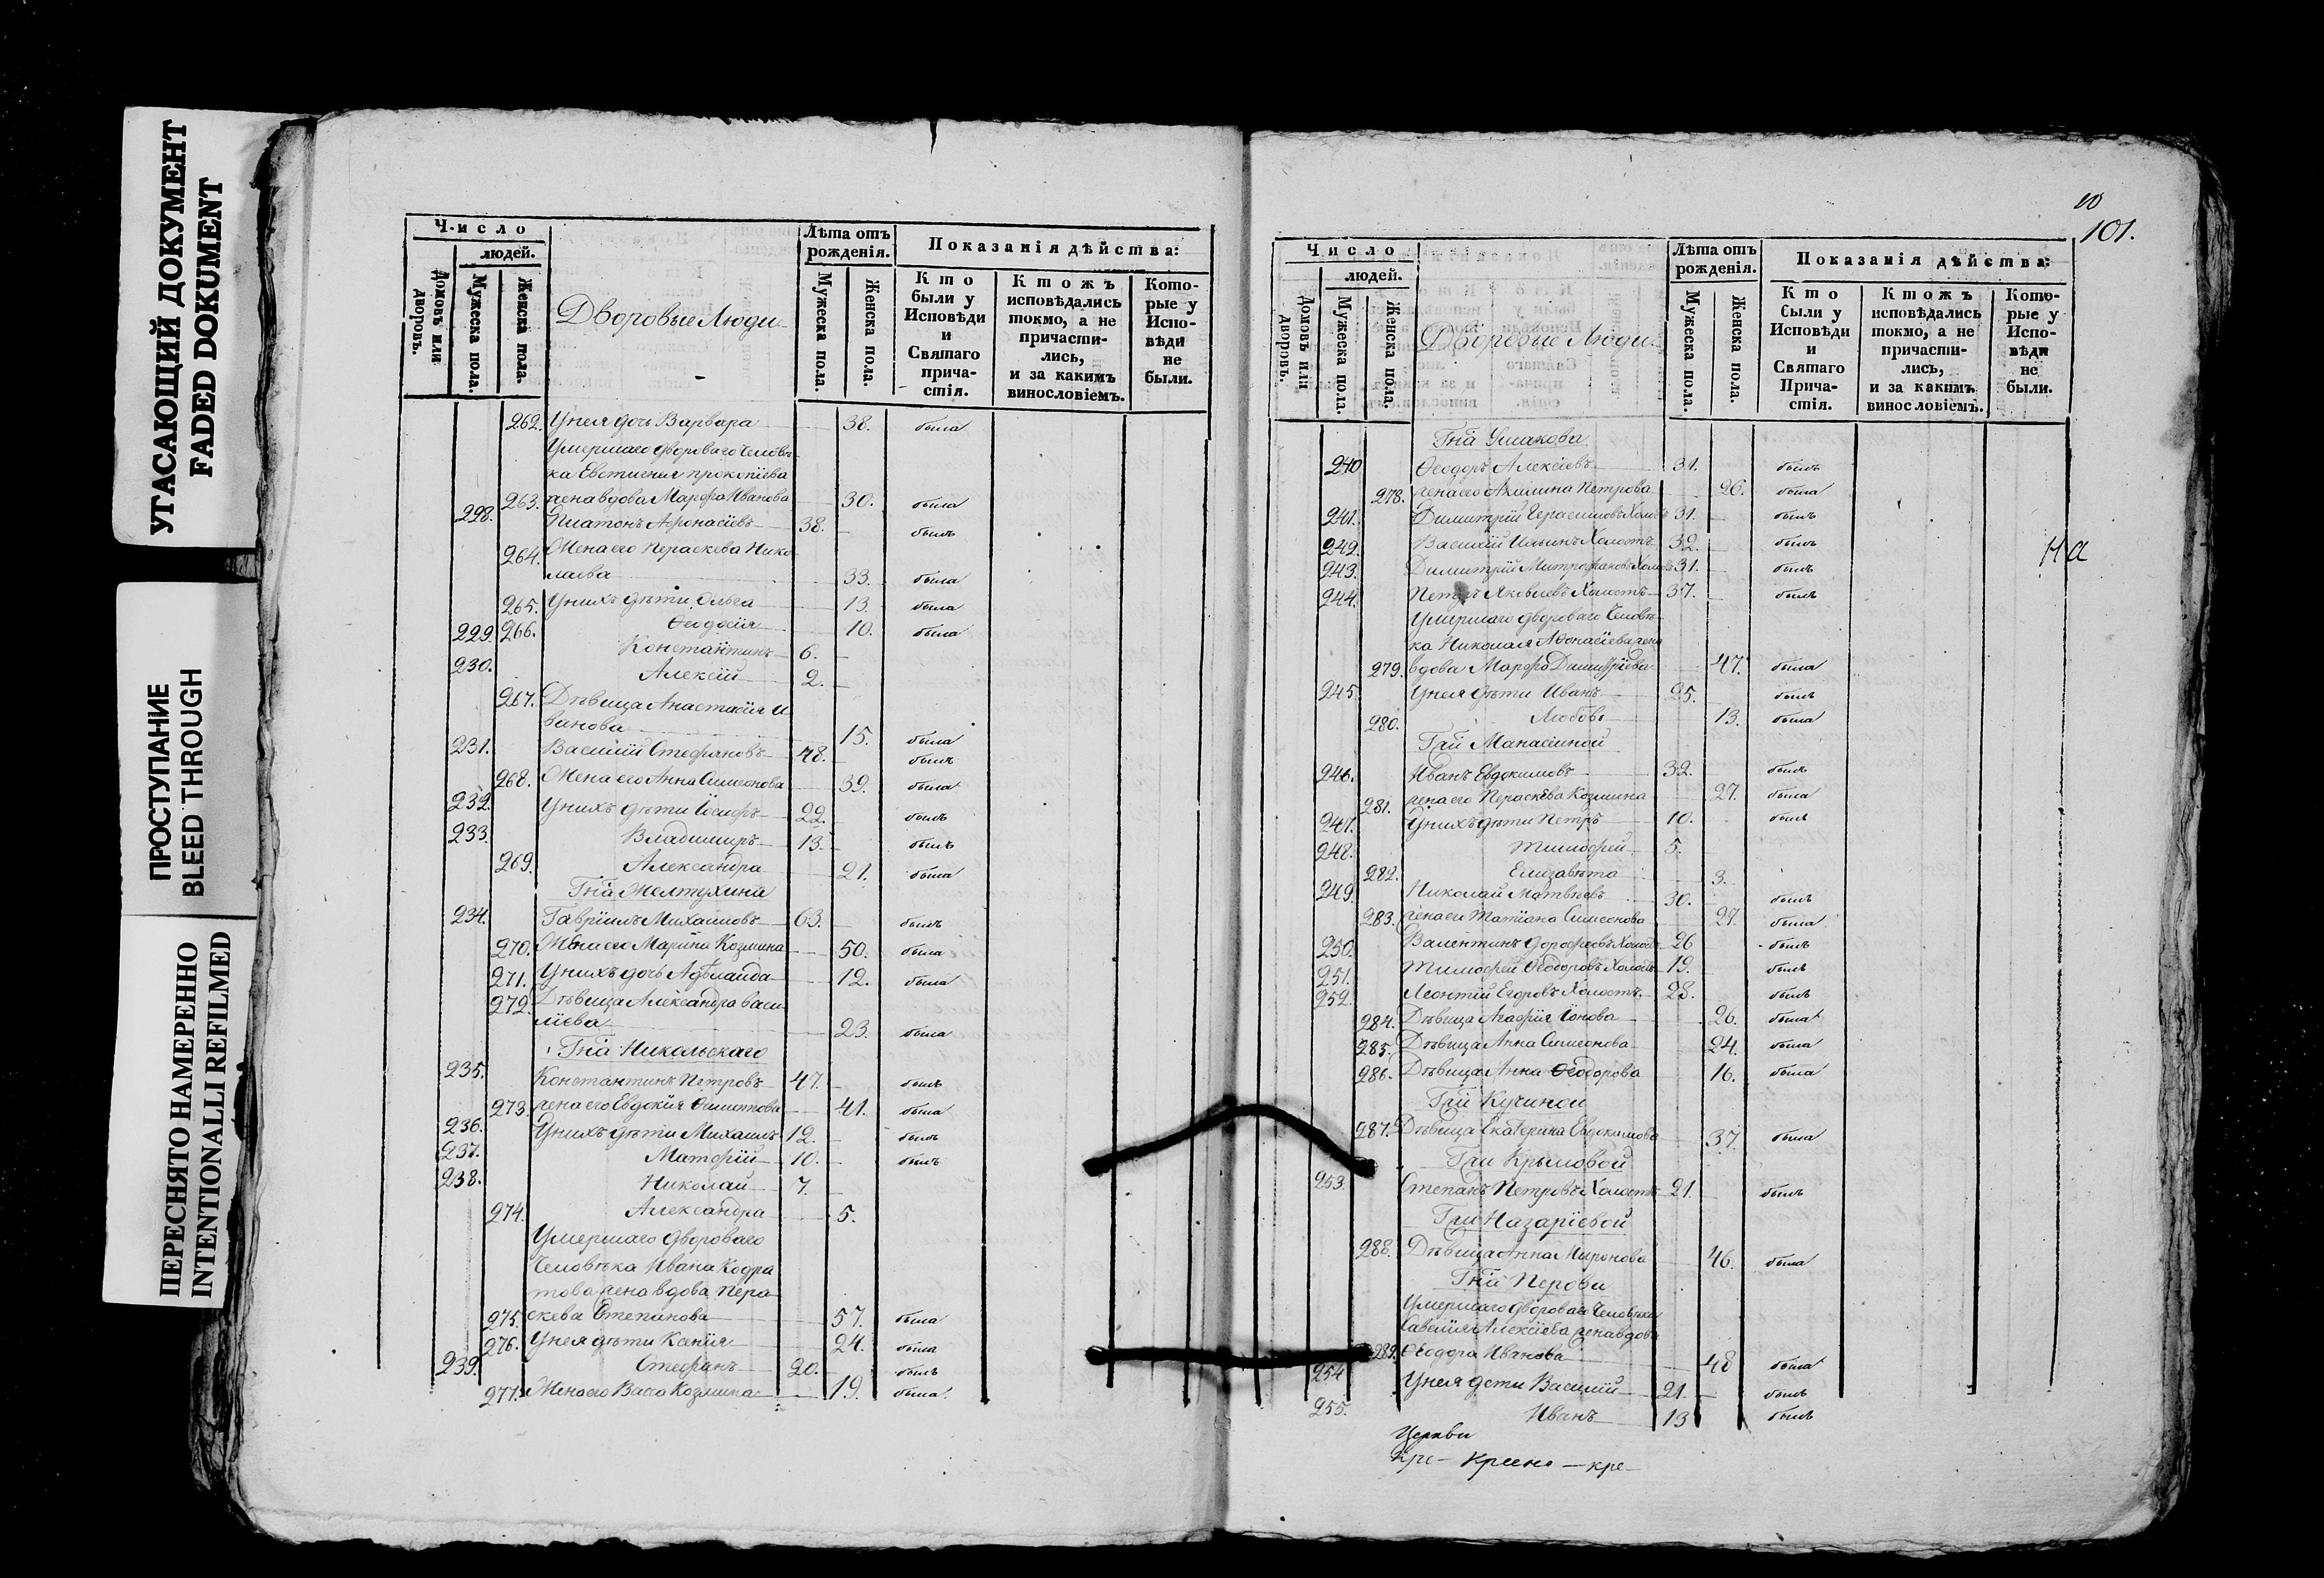 УГАСАЮЩИЙ ДОКУМЕНТ
FADED DOKUMENT
ПРОСТУПАНИЕ
BLEED THROUGH
ПЕРЕСНЯТО НАМЕРЕННО
INTENTIONALLI REFILMED
Число
людей.
Домовъ или дворовъ.
Мужеска пола.
Женска пола.
Дворовые Люди
Лѣта отъ рожденія.
Мужеска пола.
Женска пола.
Показанія дѣйства:
Кто были у Исповѣди и Святаго причастія.
Ктожъ исповѣдались токмо, а не причастились, и за какимъ винословіемъ.
Которые у Исповѣди не были.
262. Унея дочь Варвара 38. была
Умершаго двороваго человѣ-
ка Евстигнея прокопіева
263. жена вдова Марфа Иванова 30. была
228. Платонъ Афонасіевъ 38. былъ
264. Жена его Пераскева Нико-
лаева 33. была
265. Унихъ дѣти Ольга 13. была
266. Ѳеодосія 10. была
229. Константинъ 6.
230. Алексій 2.
267. Дѣвица Анастасія И
ванова 15. была
231. Василій Стефановъ 48. былъ
268. Жена его Анна Симеонова 39. была
232. Унихъ дѣти Іосифъ 22. былъ
233. Владимиръ 13. былъ
269. Александра 21. была
Гна Желтухина
234. Гавріилъ Михаиловъ 63. былъ
270. Жена его Марина Козмина 50. была
271. Унихъ дочь Адѣлаида 12. была
272. Дѣвица Александра Васи
ліева 23. была
Гна Никольскаго
235. Константинъ Петровъ 47. былъ
273. жена его Евдокія 41. была
236. Унихъ дѣти Михаилъ 12. былъ
237. Матфій 10. былъ
238. Николай 7.
274. Александра 5.
Умершаго двороваго
Человѣка Ивана Кодра
това жена вдова Пера
275. скева Степанова 57. была
276. Унея дѣти Ксенія 24. была
239. Стефанъ 20. былъ
277. Жена его Васса Козмина 19. была
101.
Число
людей.
Домовъ или дворовъ.
Мужеска пола.
Женска пола.
Дворовые Люди
Лѣта отъ рожденія.
Мужеска пола.
Женска пола.
Показанія дѣйства:
Кто были у Исповѣди и Святаго Причастія.
Ктожъ исповѣдались токмо, а не причастились, и за какимъ винословіемъ.
Которые у Исповѣди не были.
Гна Ушакова
240 Ѳеодоръ Алексіевъ 31. былъ
278. жена его Акилина Петрова 26. была
241. Димитрій Герасимовъ Холостъ 31. былъ
242. Василій Ильинъ Холостъ 32. былъ
243. Димитрій Митрофановъ Холостъ 31. былъ
244. Петръ Яковлевъ Холостъ 37. былъ
Умершаго двороваго Человѣ-
ка Николая Афонасіева жена
279. вдова Марфа Димитріева 47. была
245. Унея дѣти Иванъ 25. былъ
280. Любовь 13. была
Гжи Манасеиной
246. Иванъ Евдокимовъ 32. былъ
281. жена его Пераскева Козмина 27. была
247. Унихъ дѣти Петръ 10. былъ
248. Тимофей 5.
282. Елизавѣта 3.
249. Николай Матвѣевъ 30. былъ
283. жена его Татіана Симеонова 27. была
250. Валентинъ Дорофеевъ Холостъ 26 былъ
251. Тимофей Ѳеодоровъ Холостъ 19. былъ
252. Леонтій Егоровъ Холостъ 28. былъ
284. Дѣвица Агафія Іонова 26. была
285. Дѣвица Анна Симеонова 24. была
286. Дѣвица Анна Ѳеодорова 16. была
Гжи Кучиной
287. Дѣвица Екатерина Евдокимова 37. была
Гжи Крымовой
253. Степанъ Петровъ Холостъ 21. былъ
Гжи Назаріевой
288. Дѣвица Анна Миронова 46. была
Гна Перова
Умершаго двороваго Человѣка
Савелія Алексіева жена вдова
289. Ѳеодора Иванова 48 была
254. Унея дети Василій 21. былъ
255. Иванъ 13 былъ
Церкви
на